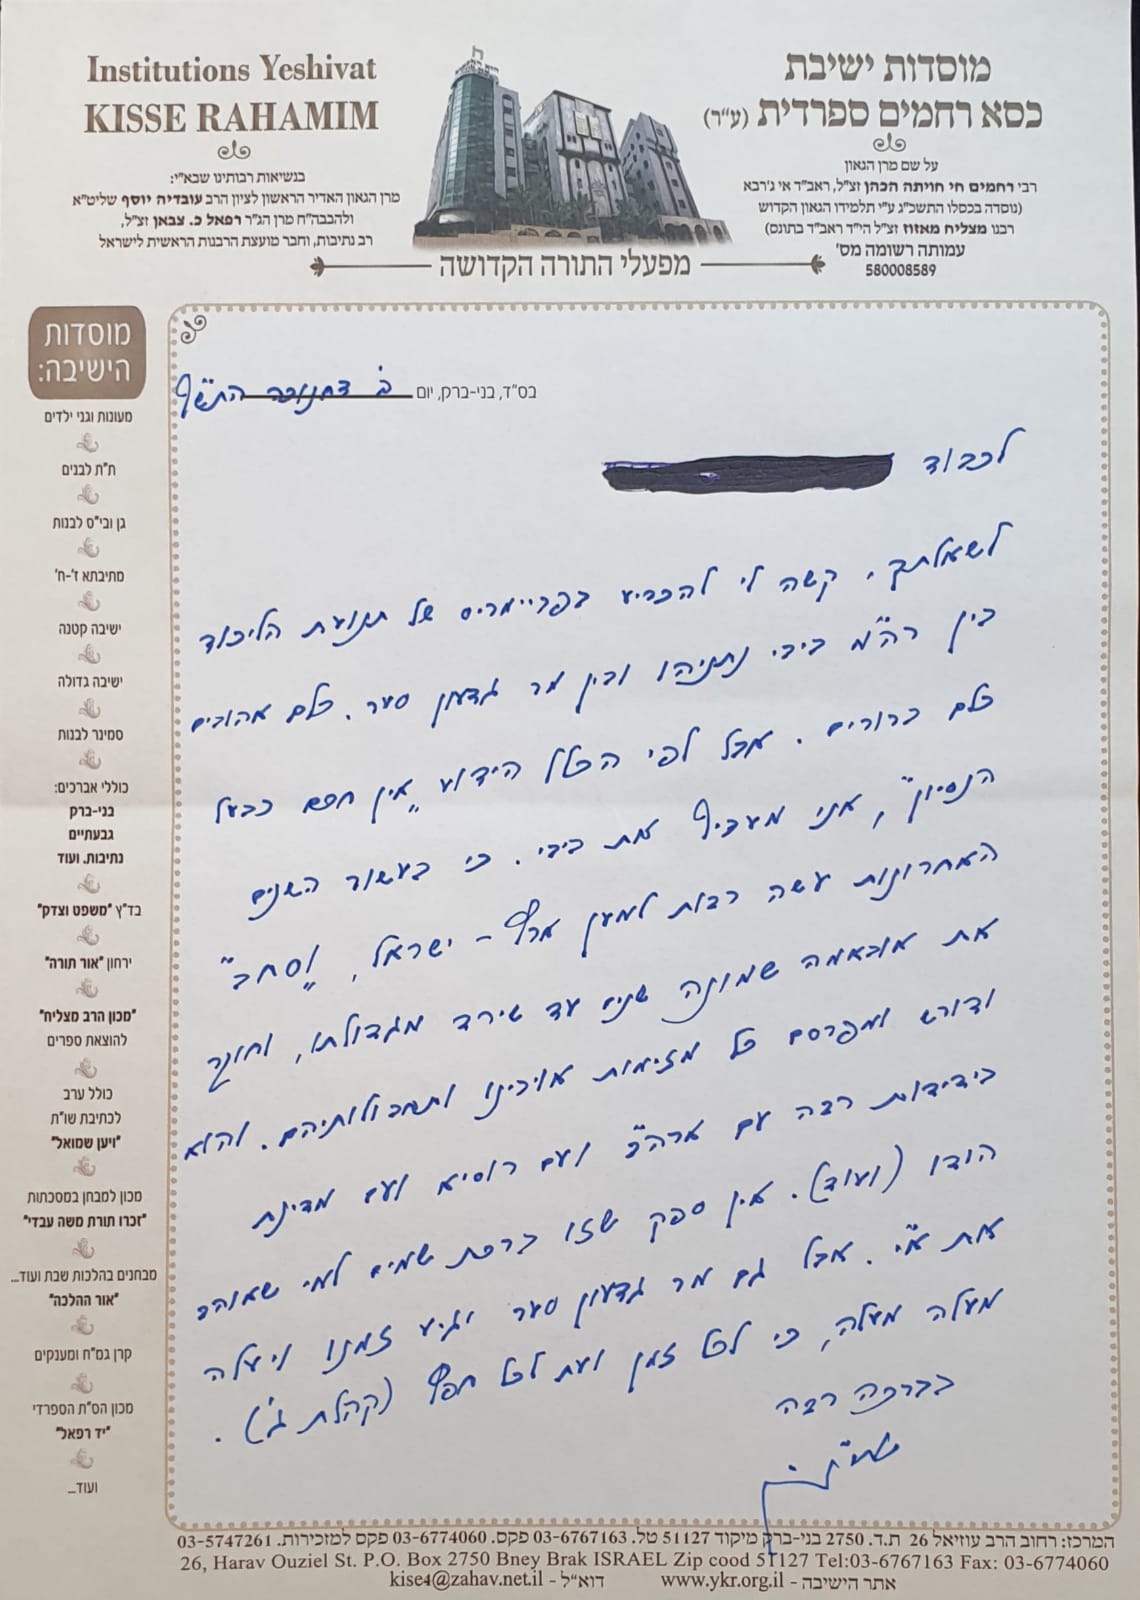 Institutions Yeshivat
KISSE RAHAMIM
בנשיאות רבותינו שבא"י:
מרן הגאון האדיר הראשון לציון הרב עובדיה יוסף שליט"א
ולהבבה"ח מרן הג"ר רפאל כ. צבאן זצ"ל,
רב נתיבות, וחבר מועצת הרבנות הראשית לישראל
מוסדות ישיבת
כסא רחמים ספרדית (ע"ר)
על שם מרן הגאון
רבי רחמים חי חויתה הכהן זצ"ל, ראב"ד אי ג'רבא
(נוסדה בכסלו התשכ"ג ע"י תלמידו הגאון הקדוש
רבנו מצליח מאזוז זצ"ל הי"ד ראב"ד בתונס)
עמותה רשומה מס'
580008589
מפעלי התורה הקדושה
מוסדות
הישיבה:
מעונות וגני ילדים
ת"ת לבנים
גן ובי"ס לבנות
מתיבתא ז'-ח'
ישיבה קטנה
ישיבה גדולה
סמינר לבנות
כוללי אברכים:
בני-ברק
גבעתיים
נתיבות. ועוד
בד"ץ "משפט וצדק"
ירחון "אור תורה"
"מכון הרב מצליח"
להוצאת ספרים
כולל ערב
לכתיבת שו"ת
"ויען שמואל"
מכון למבחן במסכתות
"זכרו תורת משה עבדי"
מבחנים בהלכות שבת ועוד...
"אור ההלכה"
קרן גמ"ח ומענקים
מכון הס"ת הספרדי
"יד רפאל"
ועוד...
בס"ד, בני-ברק, יום ב' דחנוכה התש"ף
לכבוד
לשאלתך, קשה לי להכריע בפריימריס של תנועת הליכוד
בין רה"מ ביבי נתניהו ובין מר גדעון סער. כלם אהובים
כלם ברורים. אבל לפי הכלל הידוע "אין חכם כבעל
הנסיון", אני מעדיף את ביבי. כי בעשור השנים
האחרונות עשה רבות למען ארץ-ישראל, "וסחב"
את אובאמה שמונה שנים עד שירד מגדולתו, וחוקר
ודורש ומפרסם כל מזימות אויבינו ותחבולותיהם. והוא
בידידות רבה עם ארה"ב ועם רוסיא ועם מדינת
הודו (ועוד). אין ספק שזו ברכת שמים למי שאוהב
את א"י. אבל גם מר גדעון סער יגיע זמנו ויעלה
מעלה מעלה, כי לכל זמן ועת לכל חפץ (קהלת ג').
בברכה רבה
המרכז: רחוב הרב עוזיאל 26 ת.ד. 2750 בני-ברק מיקוד 51127 טל. 03-6767163 פקס. 03-6774060 פקס למזכירות. 03-5747261
26, Harav Ouziel St. P.O. Box 2750 Bney Brak ISRAEL Zip cood 51127 Tel:03-6767163 Fax: 03-6774060
אתר הישיבה - www.ykr.org.il דוא"ל - kise4@zahav.net.il